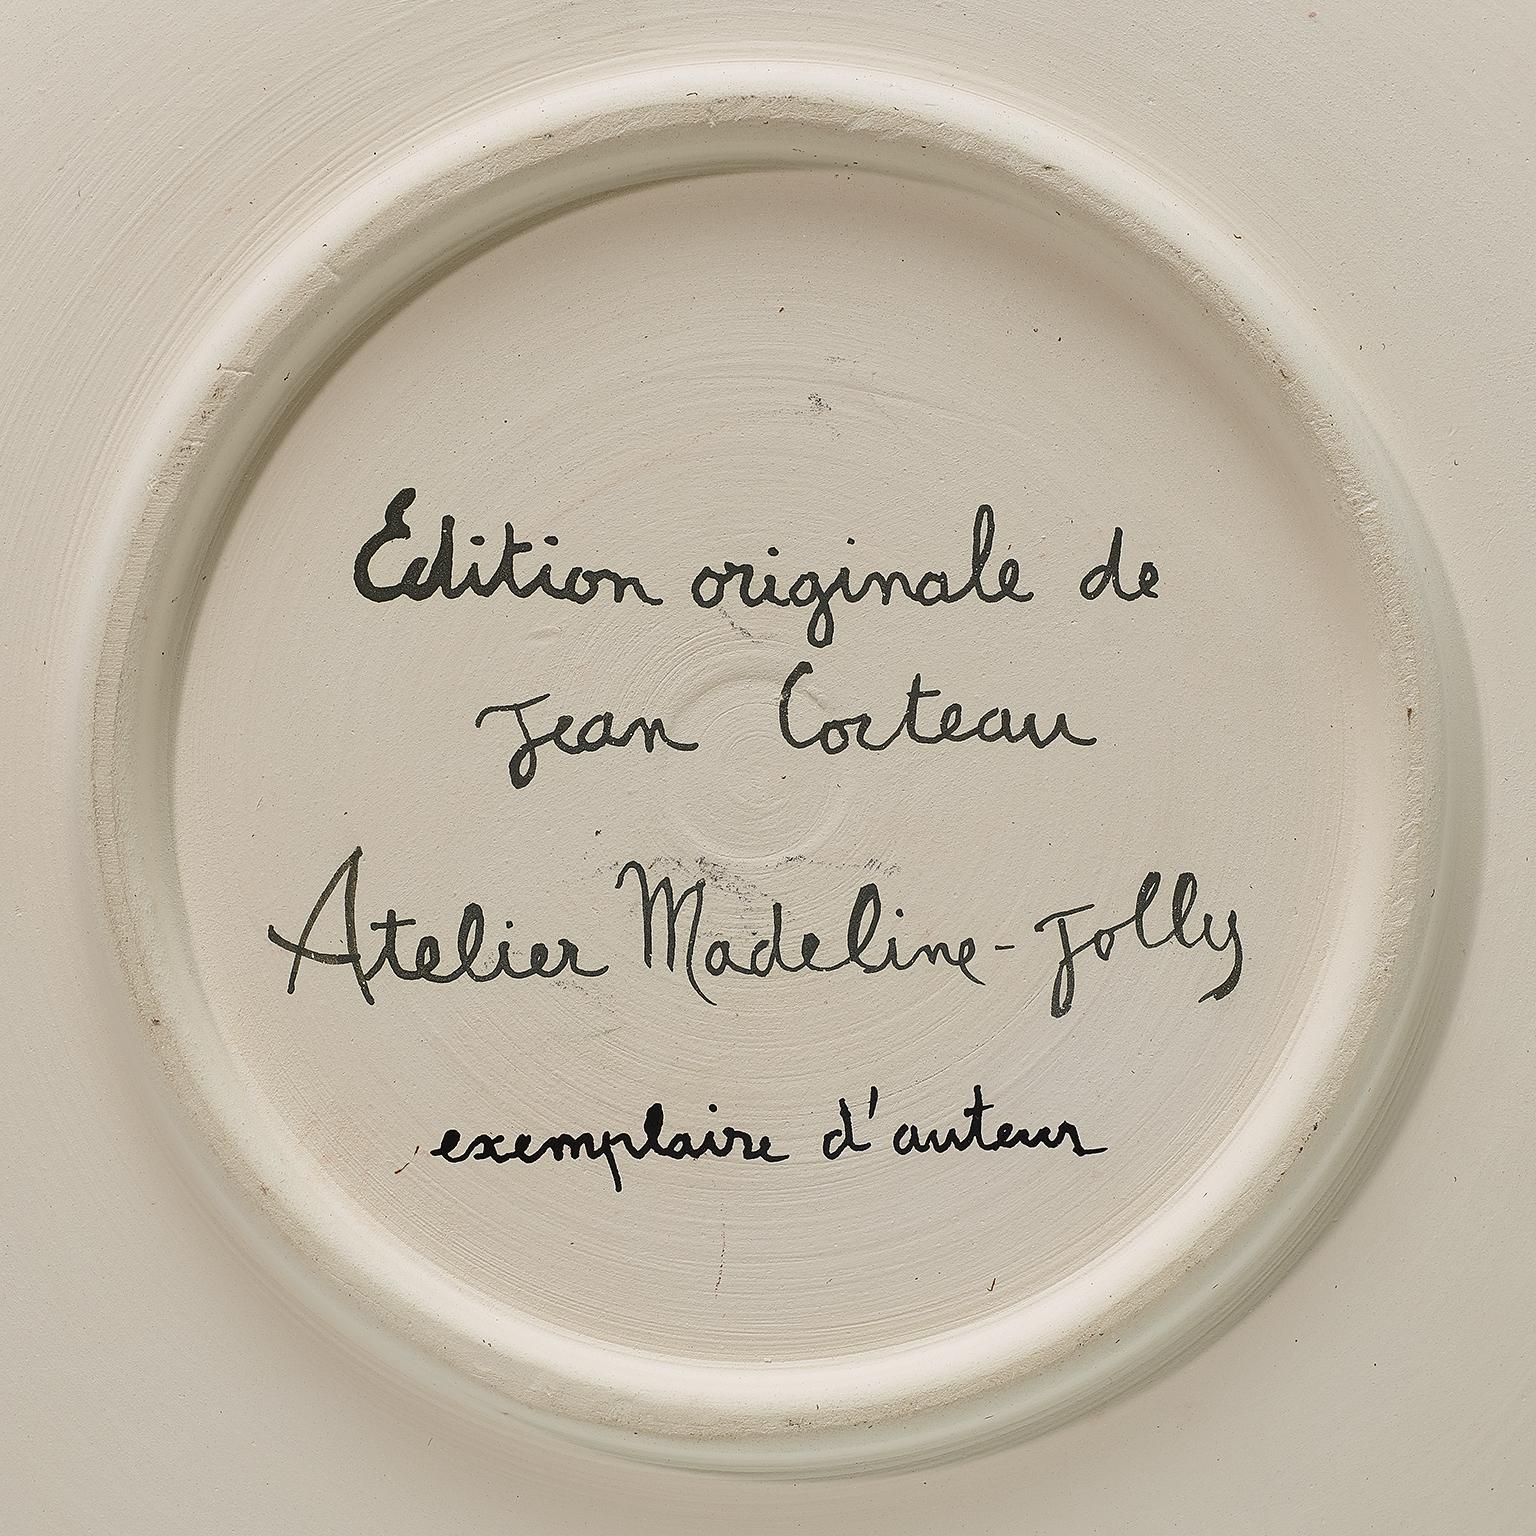 Édition originale de
Jean Cocteau
Atelier Madeline-Jolly
exemplaire d'auteur